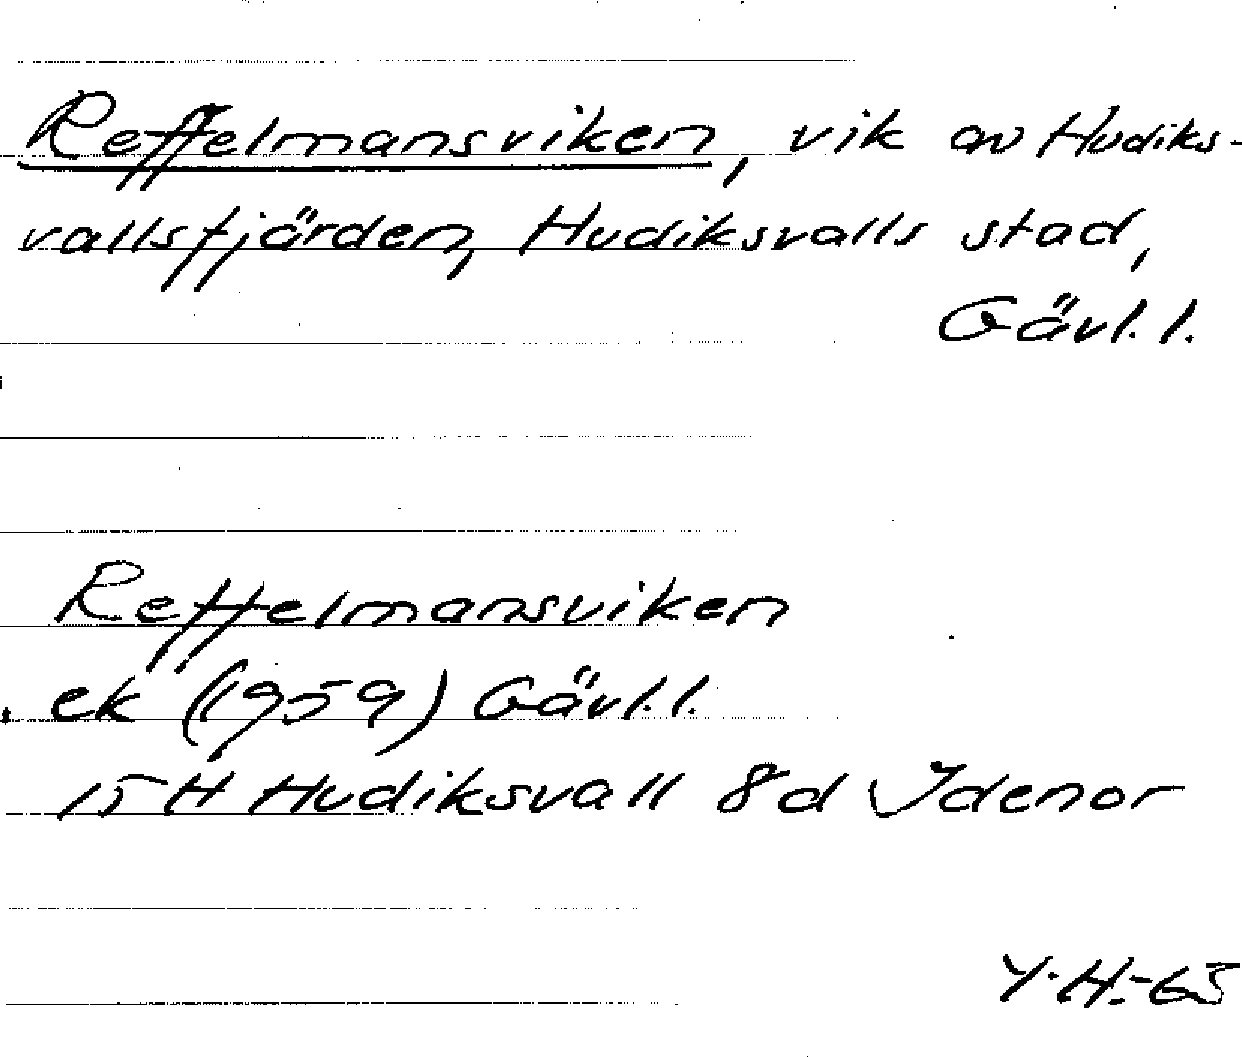 Reffelmansviken, vik av Hudiks-
vallsfjärden, Hudiksvalls stad,
Gävl. l.
Reffelmansviken
ek (1959) Gävl. l.
15 H Hudiksvall 8d Idenor
Y.H.-65